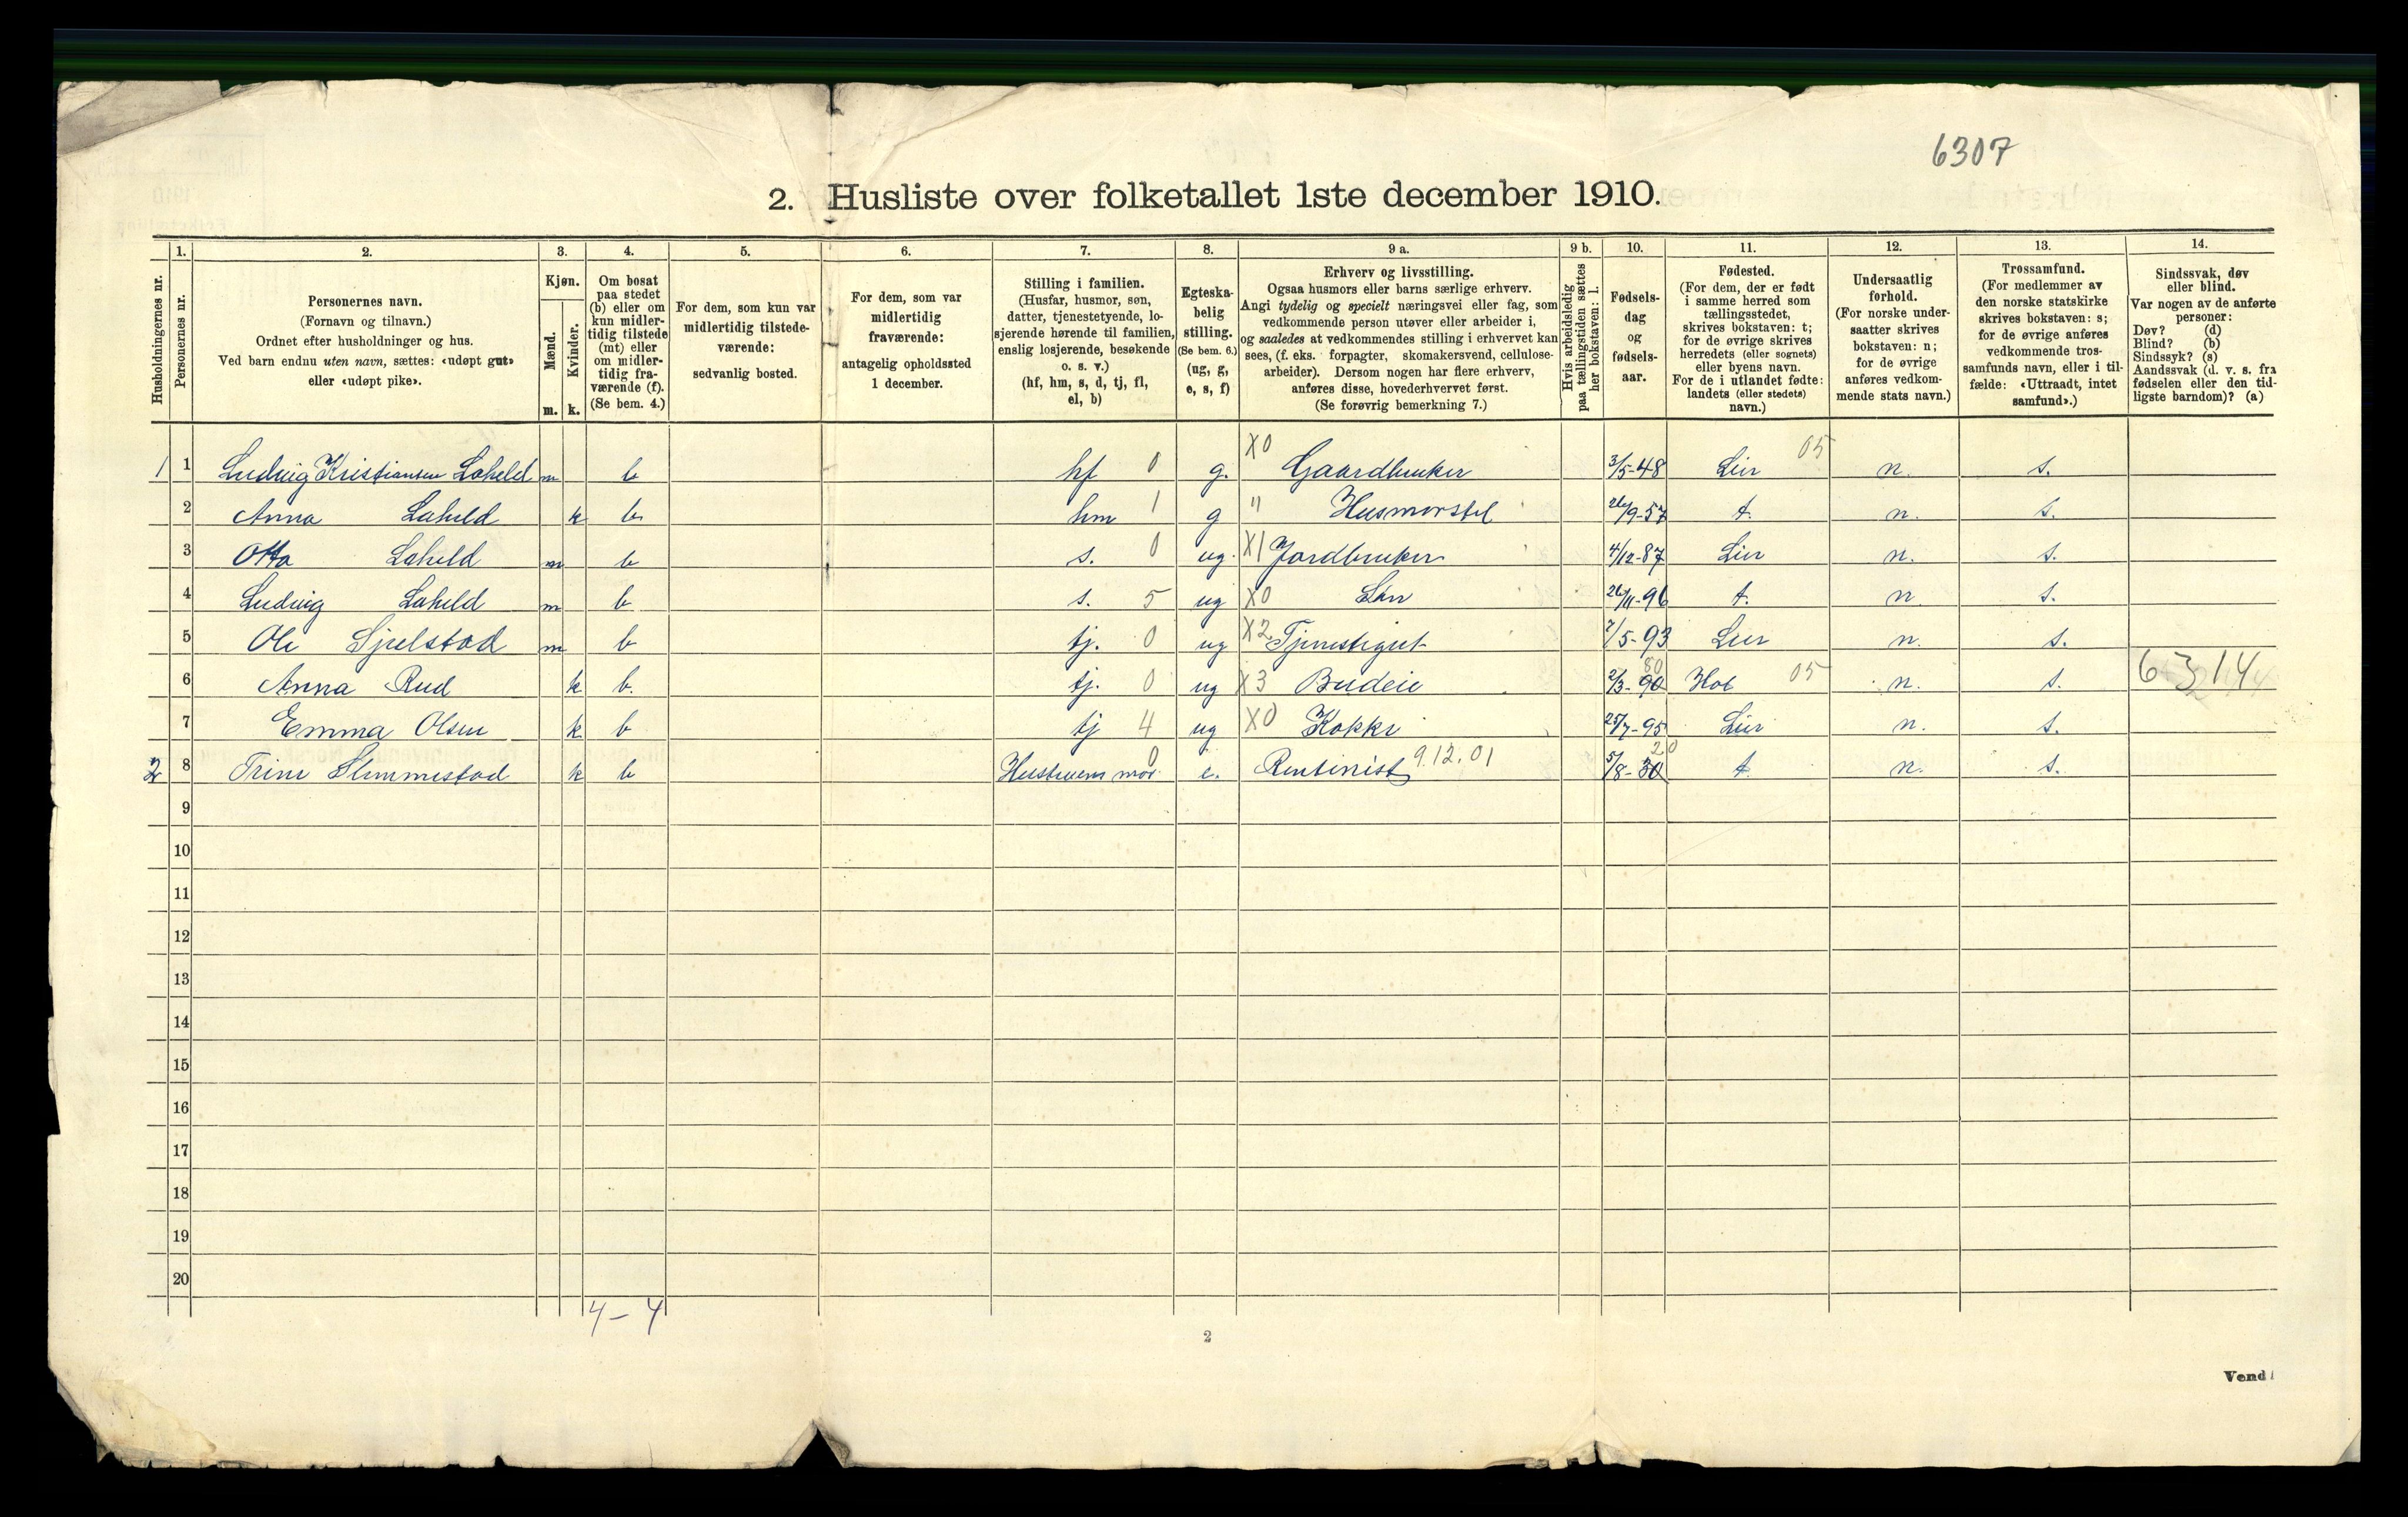 6307
2. Husliste over folketallet 1ste december 1910.
Husholdningernes nr.
1.
Personernes nr.
2.
Personernes navn.
(Fornavn og tilnavn.)
Ordnet efter husholdninger og hus.
Ved barn endnu uten navn, sættes: «udøpt gut»
eller «udøpt pike».
3.
Kjøn.
Mænd.
Kvinder.
m.
k.
4.
Om bosat
paa stedet
(b) eller om
kun midler-
tidig tilstede
(mt) eller
om midler-
tidig fra-
værende (f).
(Se bem. 4.)
5.
For dem, som kun var
midlertidig tilstede-
værende:
sedvanlig bosted.
6.
For dem, som var
midlertidig
fraværende:
antagelig opholdssted
1 december.
7.
Stilling i familien.
(Husfar, husmor, søn,
datter, tjenestetyende, lo-
sjerende hørende til familien,
enslig losjerende, besøkende
o. s. v.)
(hf, hm, s, d, tj, fl,
el, b)
8.
Egteska-
belig
stilling.
(Se bem. 6.)
(ug, g,
e, s, f)
9 a.
Erhverv og livsstilling.
Ogsaa husmors eller barns særlige erhverv.
Angi tydelig og specielt næringsvei eller fag, som
vedkommende person utøver eller arbeider i,
og saaledes at vedkommendes stilling i erhvervet kan
sees, (f. eks. forpagter, skomakersvend, cellulose-
arbeider). Dersom nogen har flere erhverv,
anføres disse, hovederhvervet først.
(Se forøvrig bemerkning 7.)
9 b.
Hvis arbeidsledig
paa tællingstiden sættes
her bokstaven: l.
10.
Fødsels-
dag
og
fødsels-
aar.
11.
Fødested.
(For dem, der er født
i samme herred som
tællingsstedet,
skrives bokstaven: t;
for de øvrige skrives
herredets (eller sognets)
eller byens navn.
For de i utlandet fødte:
landets (eller stedets)
navn.)
12.
Undersaatlig
forhold.
(For norske under-
saatter skrives
bokstaven: n;
for de øvrige
anføres vedkom-
mende stats navn.)
13.
Trossamfund.
(For medlemmer av
den norske statskirke
skrives bokstaven: s;
for de øvrige anføres
vedkommende tros-
samfunds navn, eller i til-
fælde: «Uttraadt, intet
samfund».)
14.
Sindssvak, døv
eller blind.
Var nogen av de anførte
personer:
Døv? (d)
Blind? (b)
Sindssyk? (s)
Aandssvak (d. v. s. fra
fødselen eller den tid-
ligste barndom)? (a)
1 1 Ludvig Kristiansen Laheld m b hf 0 g. X0 Gaardbruker 3/5-48 Lier 05 n. s.
2 Anna Laheld k b hm 1 g " Husmorstel 26/9-57 t. n. s.
3 Otto Laheld m b s. 0 ug. X1 Jordbruker 4/12-87 Lier n. s.
4 Ludvig Laheld m b s. 5 ug X0 Søn 26/11-96 t. n. s.
5 Ole Sjulstad m b tj. 0 ug X2 Tjenestegut 7/5-93 Lier n. s.
6 Anna Rud k b. tj. 0 ug X3 Budeie 2/3-90 80 05 n. s. 6314
7 Emma Olsen k b tj 4 ug X0 Kokke 25/7-95 Lier n. s.
2 8 Trine Slemmestad k b Hustruens mor 0 e. Rentinist 9.12.01 5/8-30 20 t n. s.
9
10
11
12
13
14
15
16
17
18
19
20
4 – 4
2
Vend!